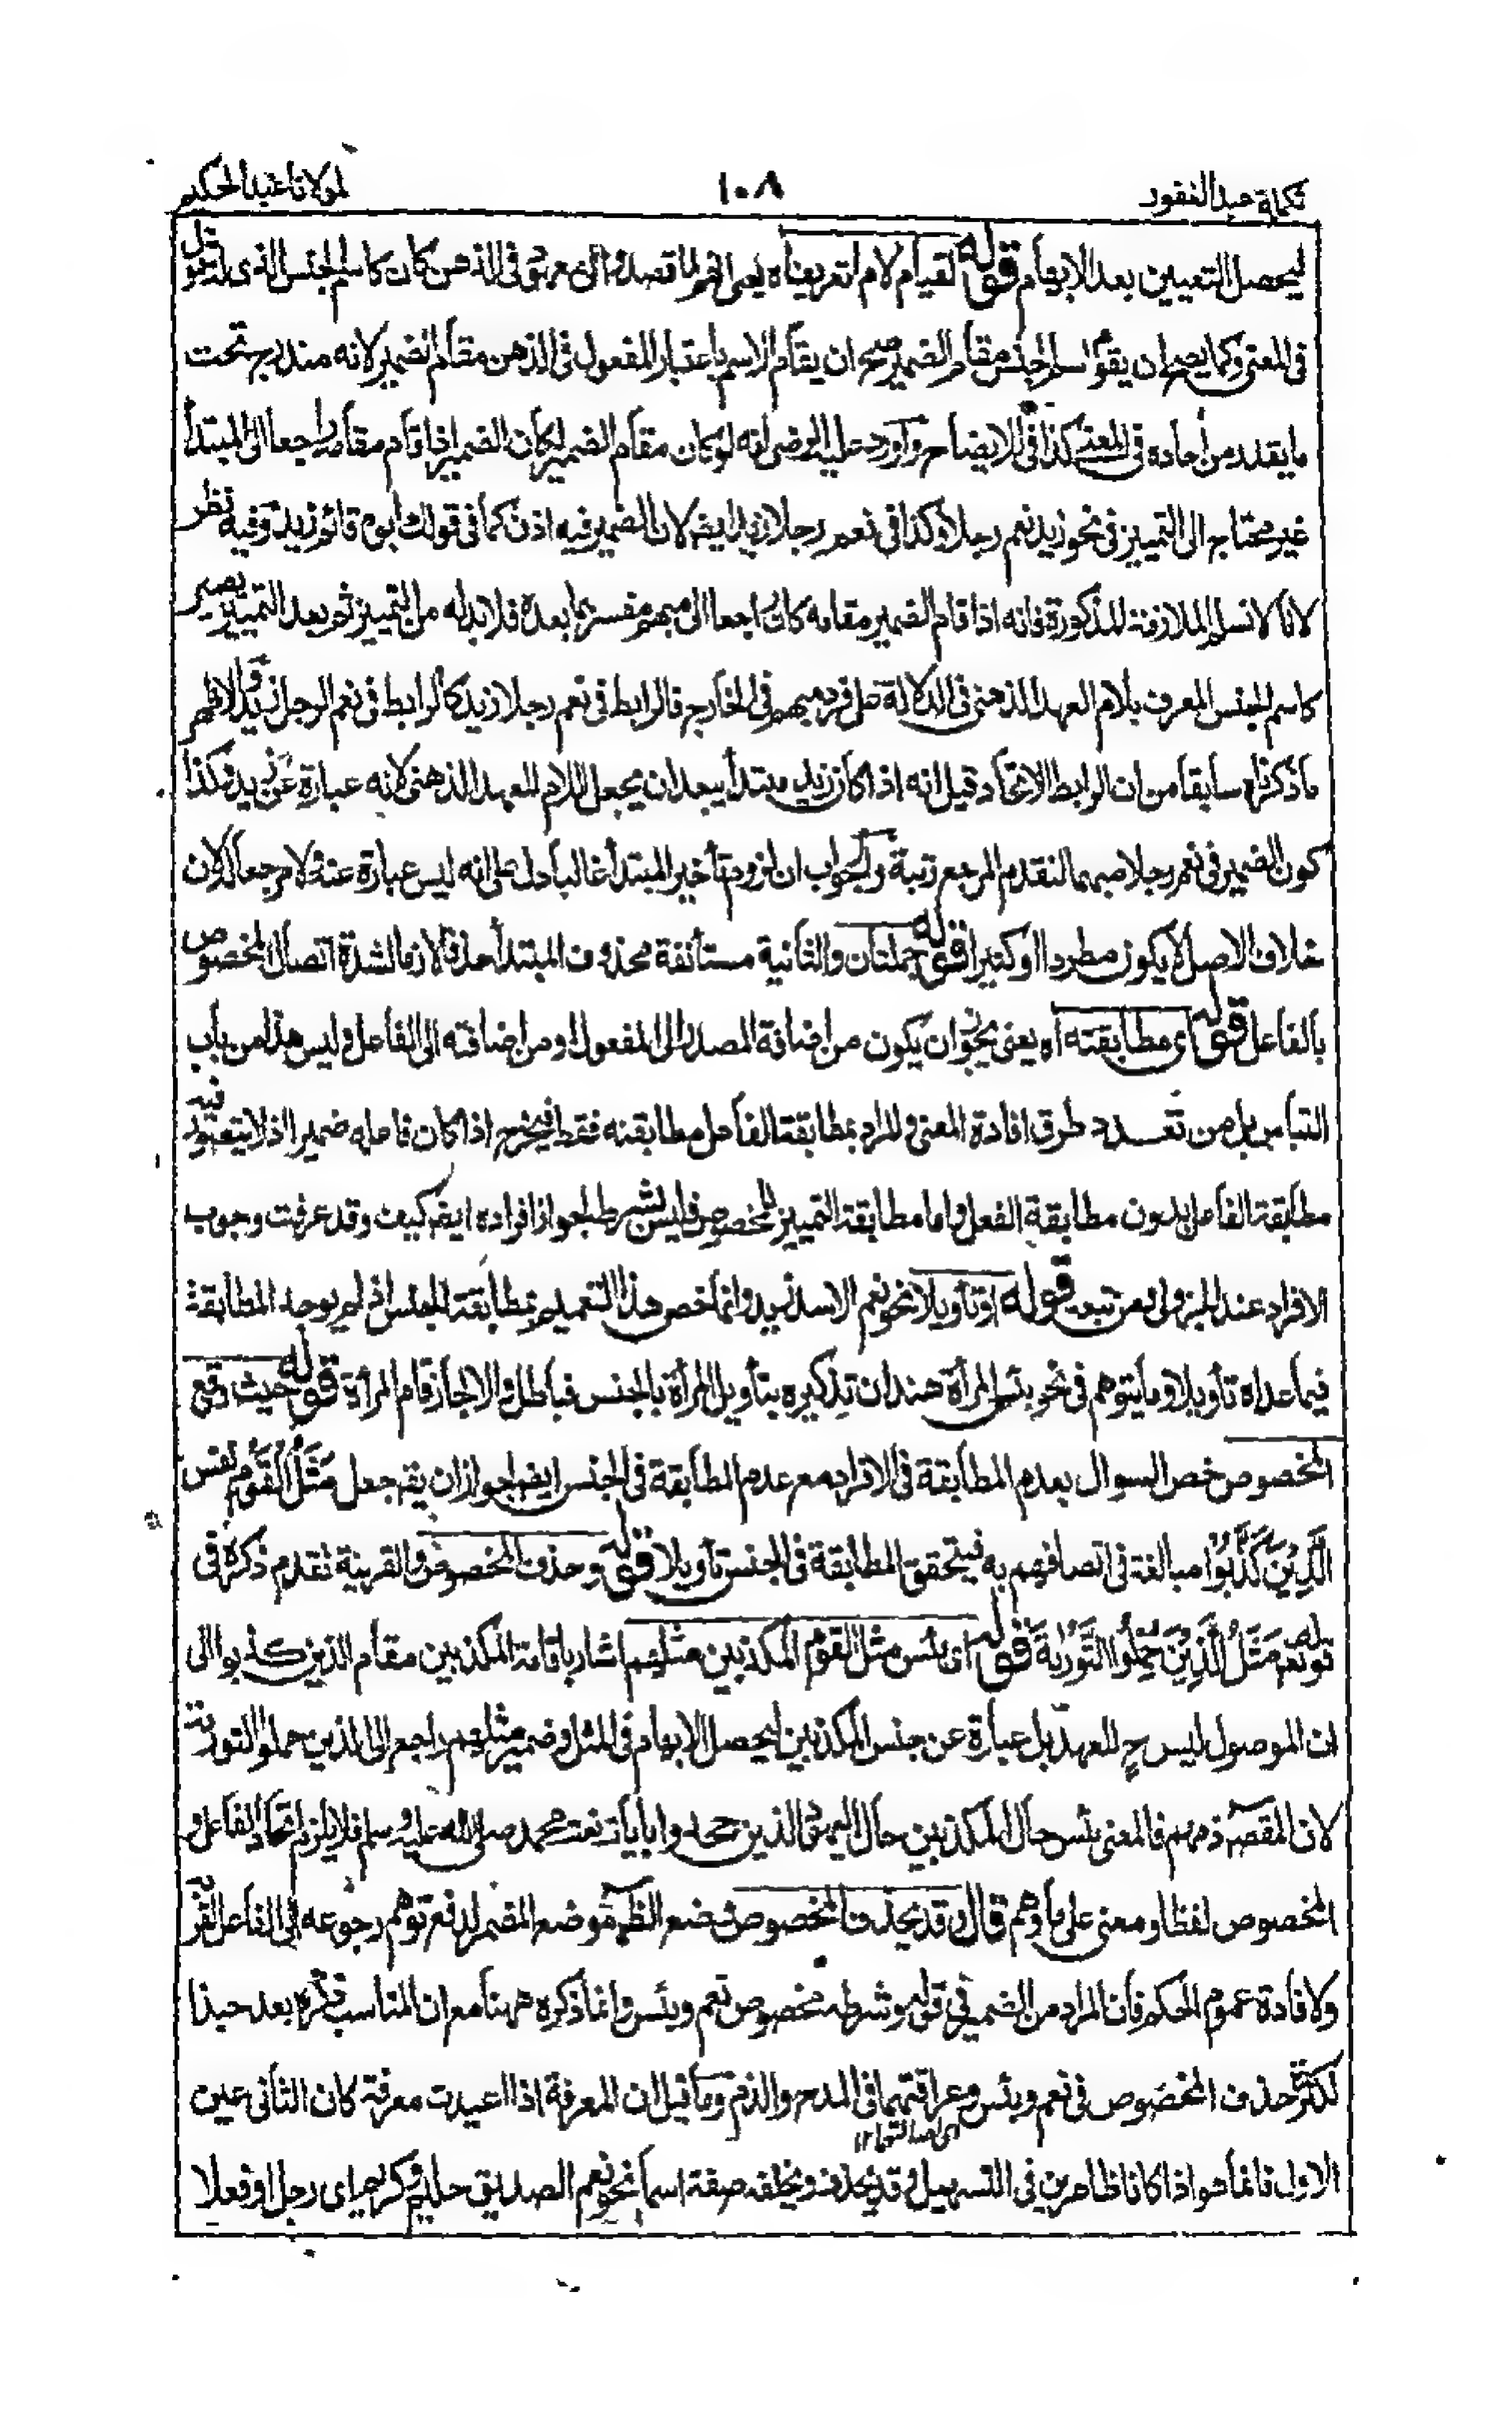 تكملة عبد الغفور
١٠٨
لمولانا عبد الحكيم
ليحصل التعيين بعد الابهام قوله لقيام لام لتعريفاه يعنى انهم لما قصدوا الى فى الذهن كان كاسم الجنس الذى
فى المعنى وكما يصح ان يقوم اسم الجنس مقام الضمير صح ان يقام الاسم باعتبار المفعول فى الذهن مقام الضمير لانه مندرج تحت
ما يقدر من احاده فى المعنى كذا فى الايضاح واورد عليه الرضى انه لو كان مقام الضمير لكان الضمير اذا قام مقامه راجعا الى المبتدأ
غير محتاج الى التمييز فى نحو زيد نعم رجلا وكذا فى نعم رجلا زيد ايضا لان الضمير فيه اذن كما فى قولك ابوه قائم زيد وفيه نظر
لانا لا نسلم الملازمة المذكورة فانه اذا قام الضمير مقامه كان راجعا الى مبهم مفسر بما بعده فلا بد له من التمييز ثم بعد التمييز يصير
كاسم الجنس المعرف بلام العهد الذهنى فى الدلالة على فرد مبهم فى الخارج فالرابط فى نعم رجلا زيد كالرابط فى نعم الرجل زيد والاظهر
ما ذكرناه سابقا من ان الرابط الاتحاد قيل انه اذا كان زيد مبتدأ يبعد ان يجعل اللام للعهد الذهنى لانه عبارة عن زيد وكذا
كون الضمير فى نعم رجلا مبهما لتقدم المرجع رتبة والجواب ان لزوم تأخير المبتدأ غالبا دل على انه ليس عبارة عنه ولا مرجعا له لان
خلاف الاصل لا يكون مطردا او كثيرا قوله جملتان والثانية مستأنفة محذوف المبتدأ حذفا لازما لشدة اتصال المخصوص
بالفاعل قوله اى مطابقته اه يعنى يجوز ان يكون من اضافة المصدر الى المفعول ومن اضافته الى الفاعل وليس هذا من باب
التباس بل من تعدد طرق افادة المعنى والمراد بمطابقة الفاعل مطابقته فقط فيخرج اذا كان فاعله ضميرا اذ لا يتصور فيه
مطابقة الفاعل بدون مطابقة الفعل واما مطابقة التمييز للمخصوص فليس بشرط لجواز افراده ايضا كيف وقد عرفت وجوب
الافراد عند الجزولى ومن تبعه قوله او تأويلا نحو نعم الاسد زيد وانما خص هذا التعميم بمطابقة الجنس اذ لم يوجد المطابقة
فيما عداه تأويلا وما يتوهم فى نحو بئس المرأة هند ان تذكيره بتأويل المرأة بالجنس فباطل والا لجاز قام المرأة قوله حيث وقع
المخصوص خص السوال بعدم المطابقة فى الافراد مع عدم المطابقة فى الجنس ايضا لجواز ان يقه جعل مَثَلُ الْقَوْمِ نفس
الَّذِيْنَ كَذَّبُوْا مبالغة فى اتصافهم به فيتحقق المطابقة فى الجنس تأويلا قوله وحذف المخصوص والقرينة تقدم ذكره فى
قوله تعم مَثَلُ الَّذِيْنَ حُمِّلُوا التَّوْرٰىةَ قوله اى بئس مثل القوم المكذبين مثلهم اشار باقامة المكذبين مقام الذين كذبوا الى
ان الموصول ليس ح للعهد بل عبارة عن جنس المكذبين ليحصل الابهام فى المثل وضمير مثلهم راجع الى الذين حملوا التورية
لان المقصود ذمهم فالمعنى بئس حال المكذبين حال اليهود الذين جحدوا بايات نعت محمد صلى الله عليه وسلم فلا يلزم اتحاد الفاعل و
المخصوص لفظا ومعنى على ما وهم قال وقد يحذف المخصوص وضع المظهر موضع المضمر لدفع توهم رجوعه الى الفاعل
ولافادة عموم الحكم فان المراد من الضمير فى قوله وشرطه مخصوص نعم وبئس وانما ذكره ههنا مع ان المناسب ذكره بعد حبذا
لكثرة حذف المخصوص فى نعم وبئس وعراقتهما فى المدح والذم وما قيل ان المعرفة اذا اعيدت معرفة كان الثانى عين
الاول فانما هو اذا كانا ظاهرين فى التسهيل وقد يحذف ويخلفه صفة اسما نحو نعم الصديق حليم وكريم اى رجل او فعلا